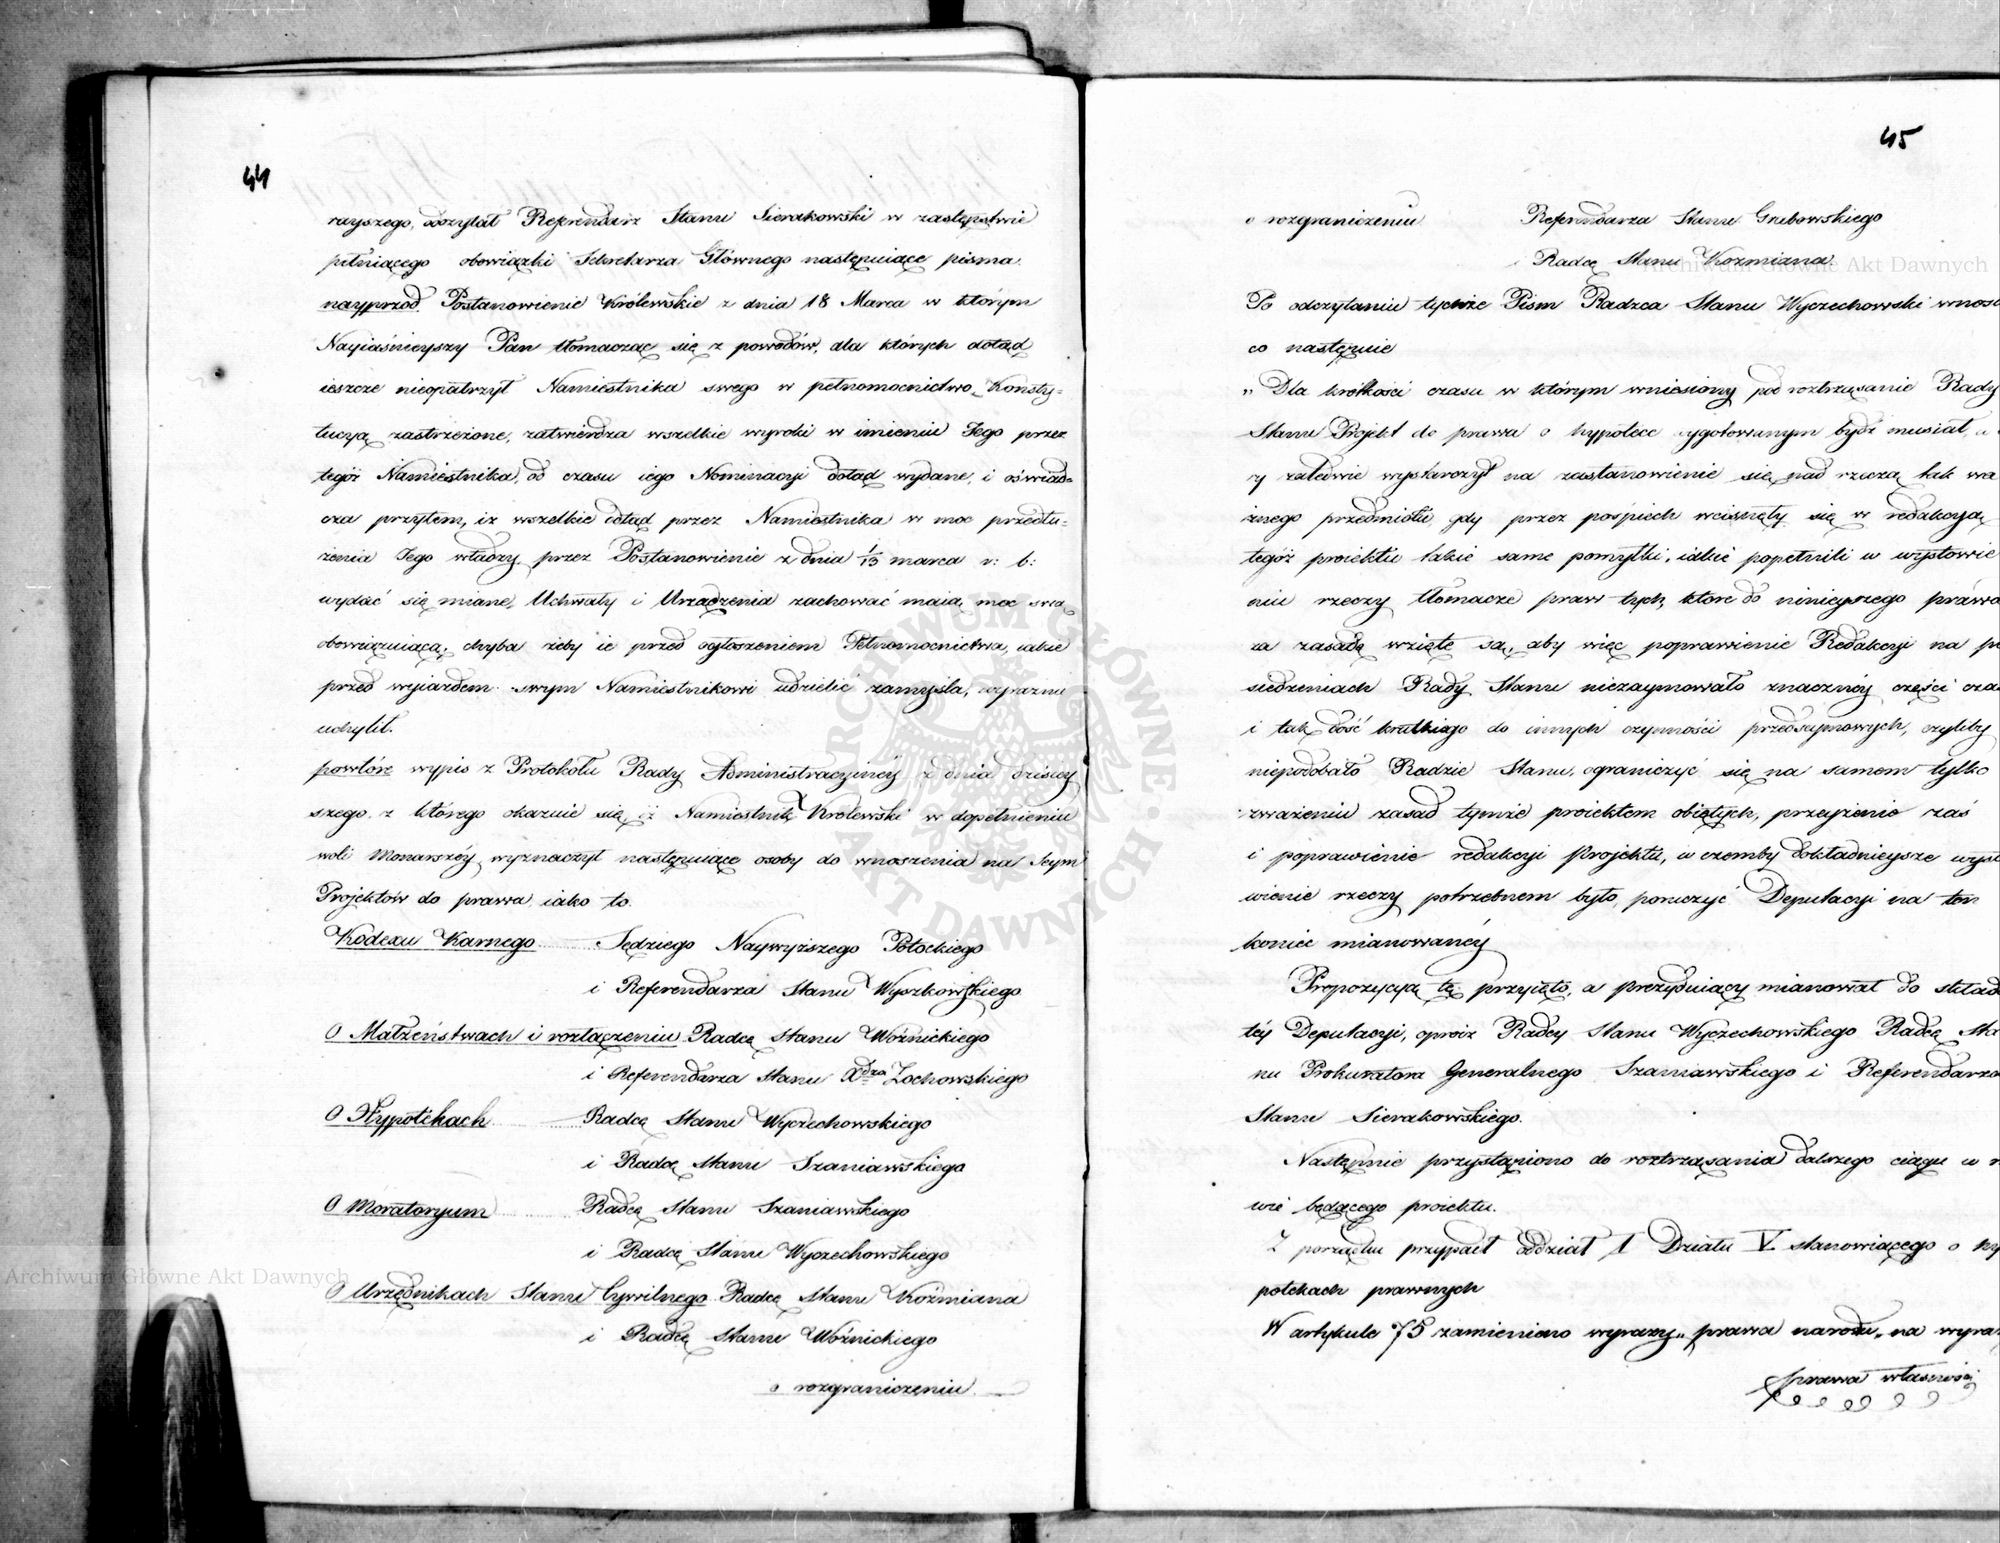 44
rayszego, odczytał Referendarz Stanu Sierakowski w zastępstwie
pełniącego obowiązki Sekretarza Głównego następuiące pisma.
nayprzod Postanowienie Królewskie z dnia 18 Marca w którym
Nayiaśnieyszy Pan tłomacząc się z powodów, dla których dotąd
ieszcze nieopatrzył Namiestnika swego w pełnomocnictwo Konsty-
tucyą zastrzeżone, zatwierdza wszelkie wyroki w imieniu Jego przez
tegóż Namiestnika, od czasu iego Nominacyi dotąd wydane, i oświad-
cza przytem, iż wszelkie dotąd przez Namiestnika w moc przedłu-
żenia Jego władzy, przez Postanowienie z dnia 1/13 marca r: b:
wydać się miane, Uchwały i Urządzenia zachować maią moc swą
obowiązuiącą, chyba żeby ie przed ogłoszeniem Pełnomocnictwa, iakie
przed wyiazdem swym Namiestnikowi udzielić zamyśla, wyraźnie
uchylił.
powtóre wypis z Protokołu Rady Administracyinéy z dnia dzisiey
szego z którego okazuie się iż Namiestnik Królewski w dopełnieniu
woli Monarszéy wyznaczył następuiące osoby do wnoszenia na Seym
Projektów do prawa iako to.
Kodexu Karnego Sędziego Naywyższego Potockiego
i Referendarza Stanu Wyszkowskiego
O Małżeństwach i rozłączeniu Radcę Stanu Woźnickiego
i Referendarza Stanu Xdza Zochowskiego
O Hypotékach Radcę Stanu Wyczechowskiego
i Radcę Stanu Szaniawskiego
O Moratoryum Radcę Stanu Szaniawskiego
i Radcę Stanu Wyczechowskiego
O Urzędnikach Stanu Cywilnego Radcę Stanu Koźmiana
i Radcę Stanu Woźnickiego
o rozgraniczeniu
45
o rozgraniczeniu Referendarza Stanu Grabowskiego
i Radcę Stanu Koźmiana
Po odczytaniu tychże Pism Radzca Stanu Wyczechowski wnosi
co następuie
„Dla krótkości czasu w którym wniesiony pod roztrząsanie Rady
Stanu Projekt do prawa o hypotece ygotowanym bydź musiał, a
ry zaledwie wystarczył na zastanowienie się nad rzeczą tak wa
żnego przedmiotu, gdy przez pośpiech wcisnęły się w redakcyą
tegóż proiektu takie same pomyłki, iakie popełnili w wysłowie
niu rzeczy tłomacze praw tych, ktore do ninieyszego prawa
za zasadę wzięte są, aby więc poprawienie Redakcyi na po
siedzeniach Rady Stanu niezaymowało znacznéy części cza
i tak dość krutkiego do innych czynności przedseymowych, czyliby
niepodobało Radzie Stanu, ograniczyć się na samem tylko
zważeniu zasad tymże proiektem obiętych, przeyżenie zaś
i poprawienie redakcyi Projektu, w czemby dokładnieysze wysło
wienie rzeczy potrzebnem było, poruczyć Deputacyi na ten
koniec mianowanéy
Propozycyą tę przyięto, a prezyduiący mianował do składu
téy Deputacyi, oprócz Radcy Stanu Wyczechowskiego Radcę Sta
nu Prokuratora Generalnego Szaniawskiego i Referendarza
Stanu Sierakowskiego.
Następnie przystąpiono do roztrząsania dalszego ciągu w m
wie będącego proiektu.
Z porządku przypadł oddział 1 Działu V stanowiącego o hy
potekach prawnych
W artykule 75 zamieniono wyrazy „prawa narodu„ na wyraz
prawa własności
Archiwum Główne Akt Dawnych
Archiwum Główne Akt Dawnych
ARCHIWUM GŁÓWNE AKT DAWNYCH